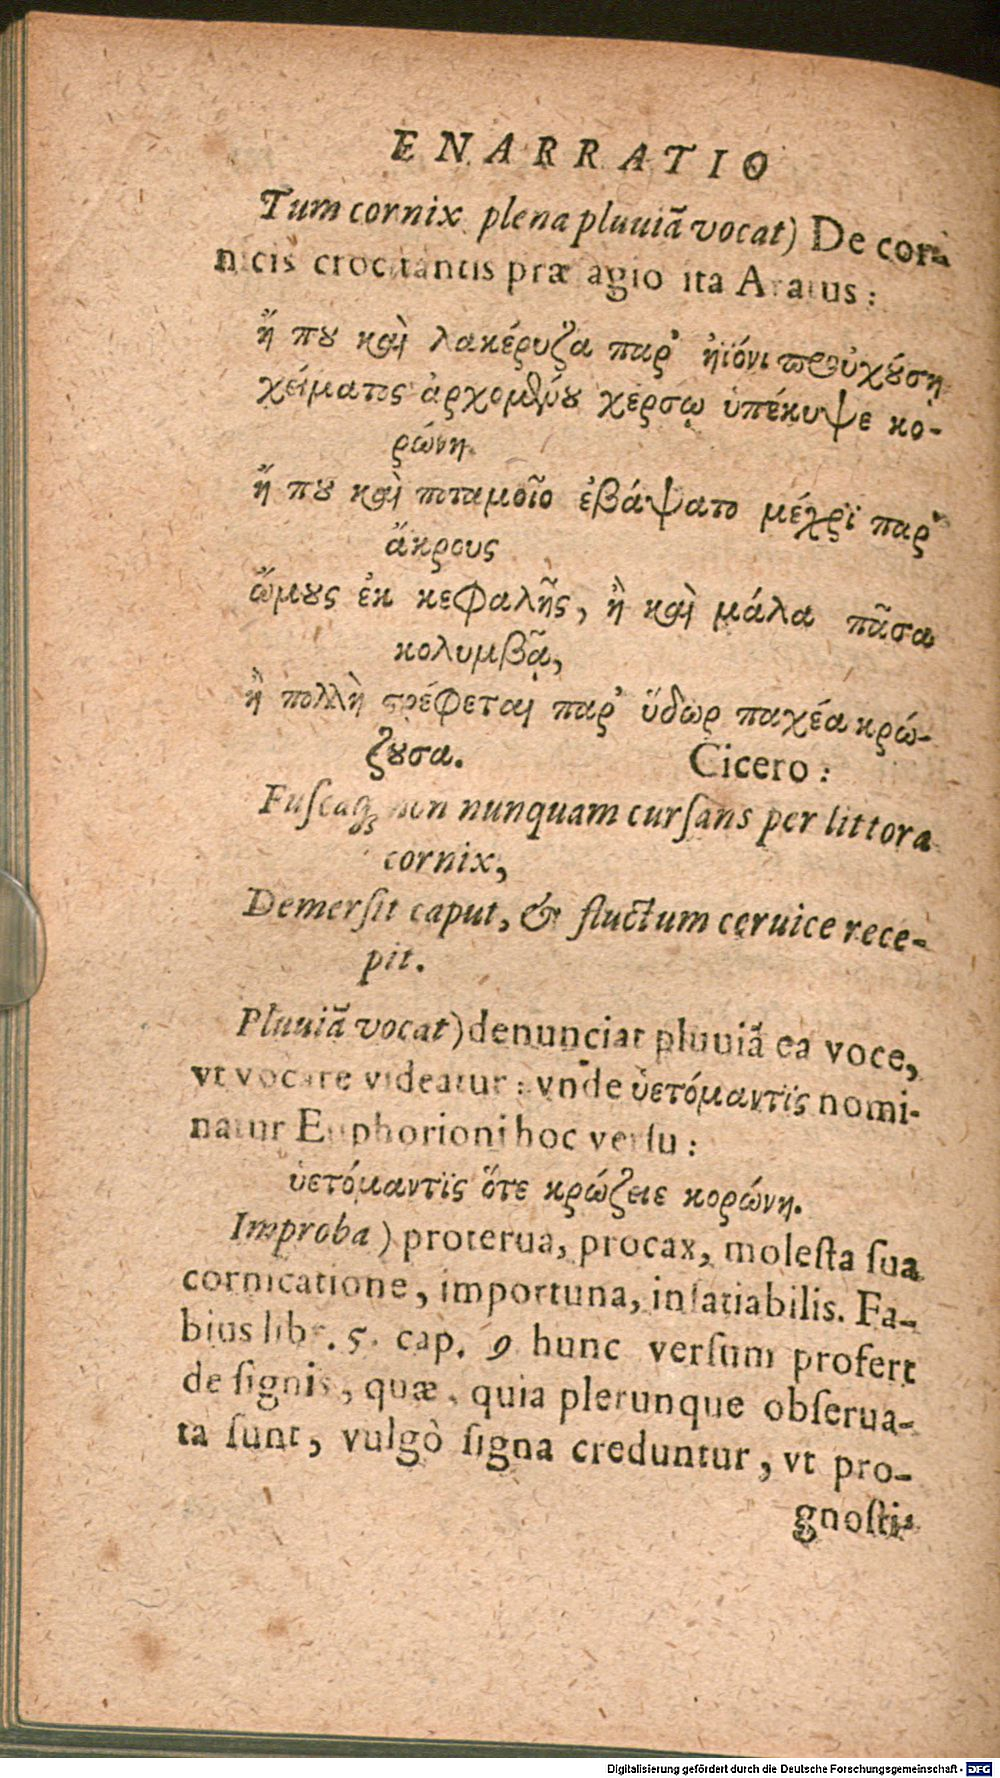 ENARRATIO
Tum cornix plena pluuiã vocat) De cor-
nicis crocitantis præsagio ita Aratus :
ἤ που καὶ λακέρυζα παρ’ ἠϊόνι προὐχούσῃ
χείματος ἀρχομένου χέρσῳ ὑπέκυψε κο-
ρώνη.
ἤ που καὶ ποταμοῖο ἐβάψατο μέχρϊ παρ’
ἄκρους
ὤμους ἐκ κεφαλῆς, ἢ καὶ μάλα πᾶσα
κολυμβᾷ,
ἢ πολλὴ στρέφεται παρ’ ὕδωρ παχέα κρώ-
ζουσα. Cicero :
Fuſcaq; non nunquam curſans per littora
cornix,
Demerſit caput, & fluctum ceruice rece-
pit.
Pluuiã vocat) denunciat pluuiã ea voce,
vt vocare videatur : vnde ὑετόμαντϊς nomi-
natur Euphorioni hoc verſu :
ὑετόμαντϊς ὅτε κρώζειε κορώνη.
Improba ) proterua, procax, moleſta ſua
cornicatione, importuna, inſatiabilis. Fa-
bius libr. 5. cap. 9 hunc verſum profert
de ſignis, quæ, quia plerunque obſerua-
ta ſunt, vulgò ſigna creduntur, vt pro-
gnoſti-
Digitalisierung gefördert durch die Deutsche Forschungsgemeinschaft - DFG